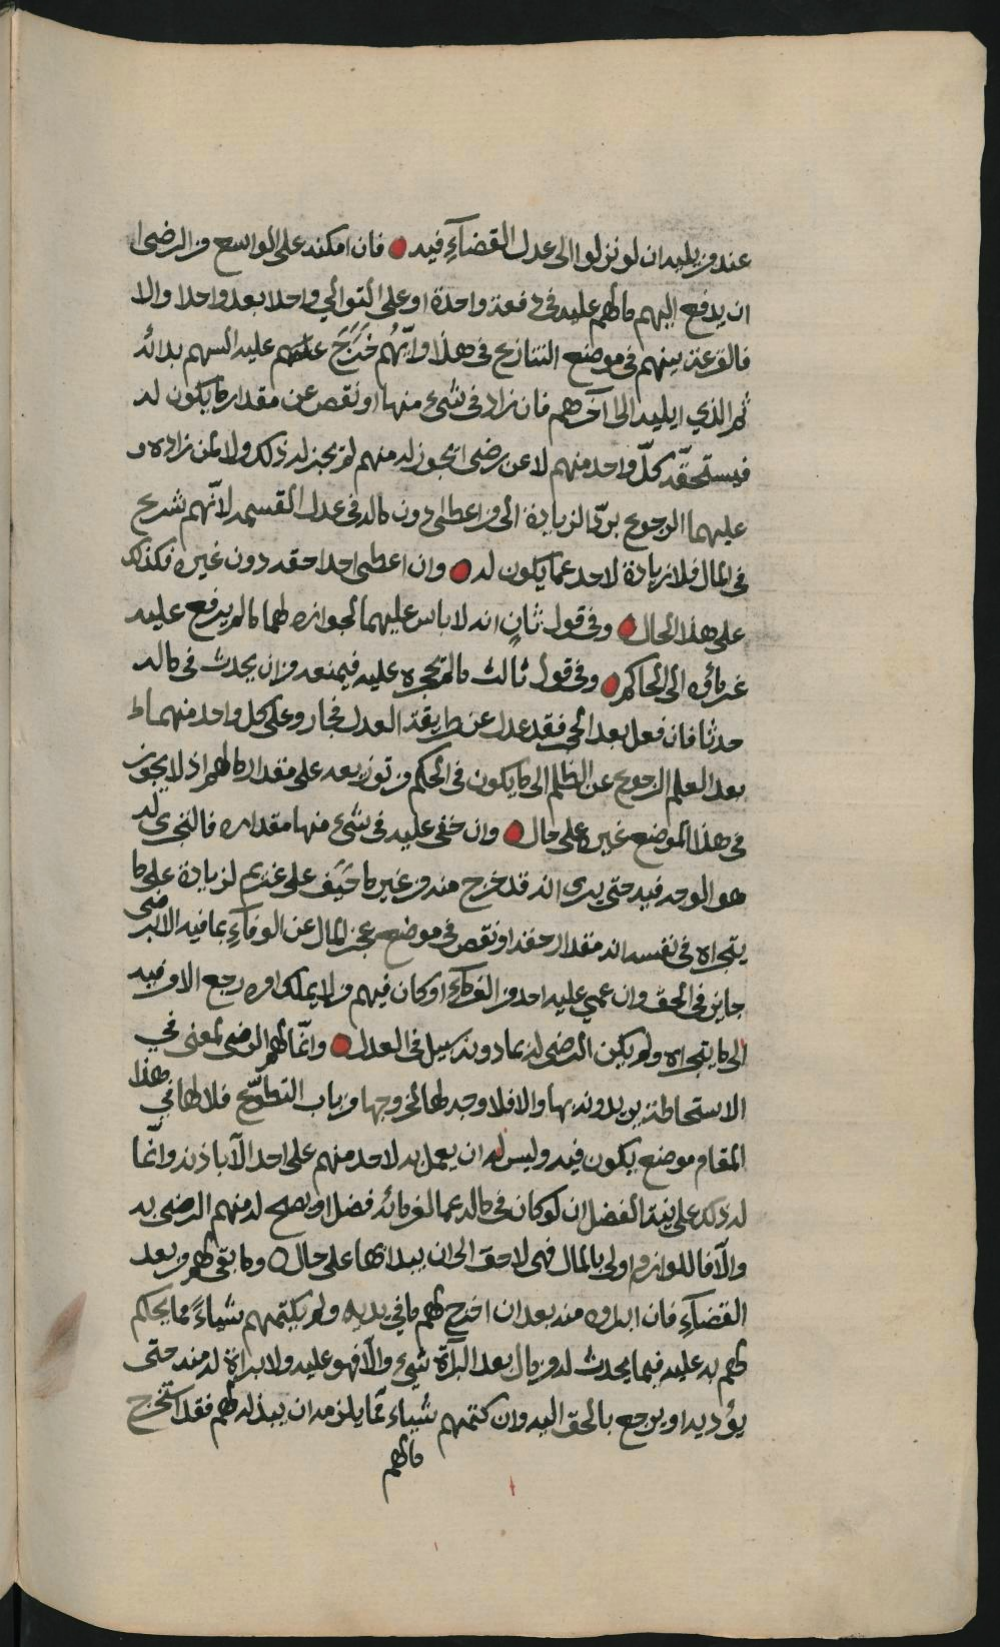 عند من يليه ان لو نزلوا الى عدل القضآء فيه فان امكنه على الواسع من الرضى ا
ان يدفع اليهم ما لهم عليه في دفعة واحدة او على التوالي واحدا بعد واحد او الا
فالقرعة بينهم في موضع التنازع في هذا وايّهُم خَرَجَ عليه السهم بدائه
ثم الذي يليه الى آخرهم فان زاد في شيء منها او نقص عن مقدار ما يكون له
فيستحقّه كلّ واحد منهم لا عن رضى يجوز له منهم لم يجز له ذلك ولا لمن زاده و
عليهما الرجوع بردّ الزيادة الى من اعطى دون ماله في عدل القسمه لانّهم شرع
في المال فلا زيادة لاحد عما يكون له وان اعطى احدا حقه دون غيره فكذلك
على هذا الحال وفي قول ثانٍ انه لا باس عليهما لجوازه لهما ما لم يرفع عليه
غرماؤه الى الحاكم وفي قول ثالث ما لم يحجره عليه فيمنعه من ان يحدث في ماله
حدثا فان فعل بعد الحجر فقد عدل عن طريقة العدل فجار وعلى كل واحد منهما
بعد العلم الرجوع عن الظلم الى ما يكون في الحكم من توزيعه على مقدار ما لهم اذ لا يجوز
في هذا الموضع غيره على حال وان خفي عليه في شيء منها مقداره فالتحري له
هو الوجه فيه حتى يرى انه قد خرج منه من غير ما حَيَف على غريم لزيادة على ما
يتحراه في نفسه انه مقدار حقه او نقص في موضع عجز المال عن الوفآء بما فيه الا برضى
جاين في الحق وان عمي عليه احد من الغرمآء او كان فيهم من لا يملك امره رجع الامر فيه
الى ما يتحراه ولم يكن الرضى له بما دونه سبيل في العدل وانّما لهم الرضى لمعنى في
الاستحاطة يريدونه بها والا فلا وجه لها لخروجها من باب التطوّع فلا لها في هذا
المقام موضع يكون فيه وليس له ان يعمل به لاحد منهم على احد الّا باذنه وانّما
له ذلك على نية الفضل ان لو كان في ماله عما لغرمائه فضل او يصح له منهم الرضى به
والّا فاللوازم اولى بالمال فهي لا حق الى ان يبدا بها على حال وما بقي لهم من بعد
القضآء فان ابروه منه بعد ان اخرج لهم ما في يديه ولم يكتمهم شياءً مما يحكم
لهم به عليه فيما يحدث له من مال بعد البرآة شيء والّا فهو عليه ولا براة له منه حتى
يؤديه او يرجع بالحق اليه وان كتمهم شياء ممّا يلزمه ان يبذله لهم فقد استخرج
مالهم